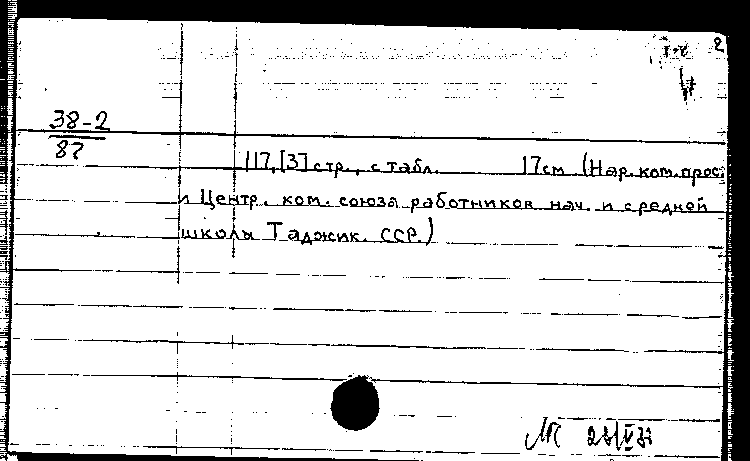 2
38-2
87
117, [3] стр., с табл. 17см (Нар. ком. прос.
и Центр. ком. союза работников нач. и средней
школы Таджик. ССР.)